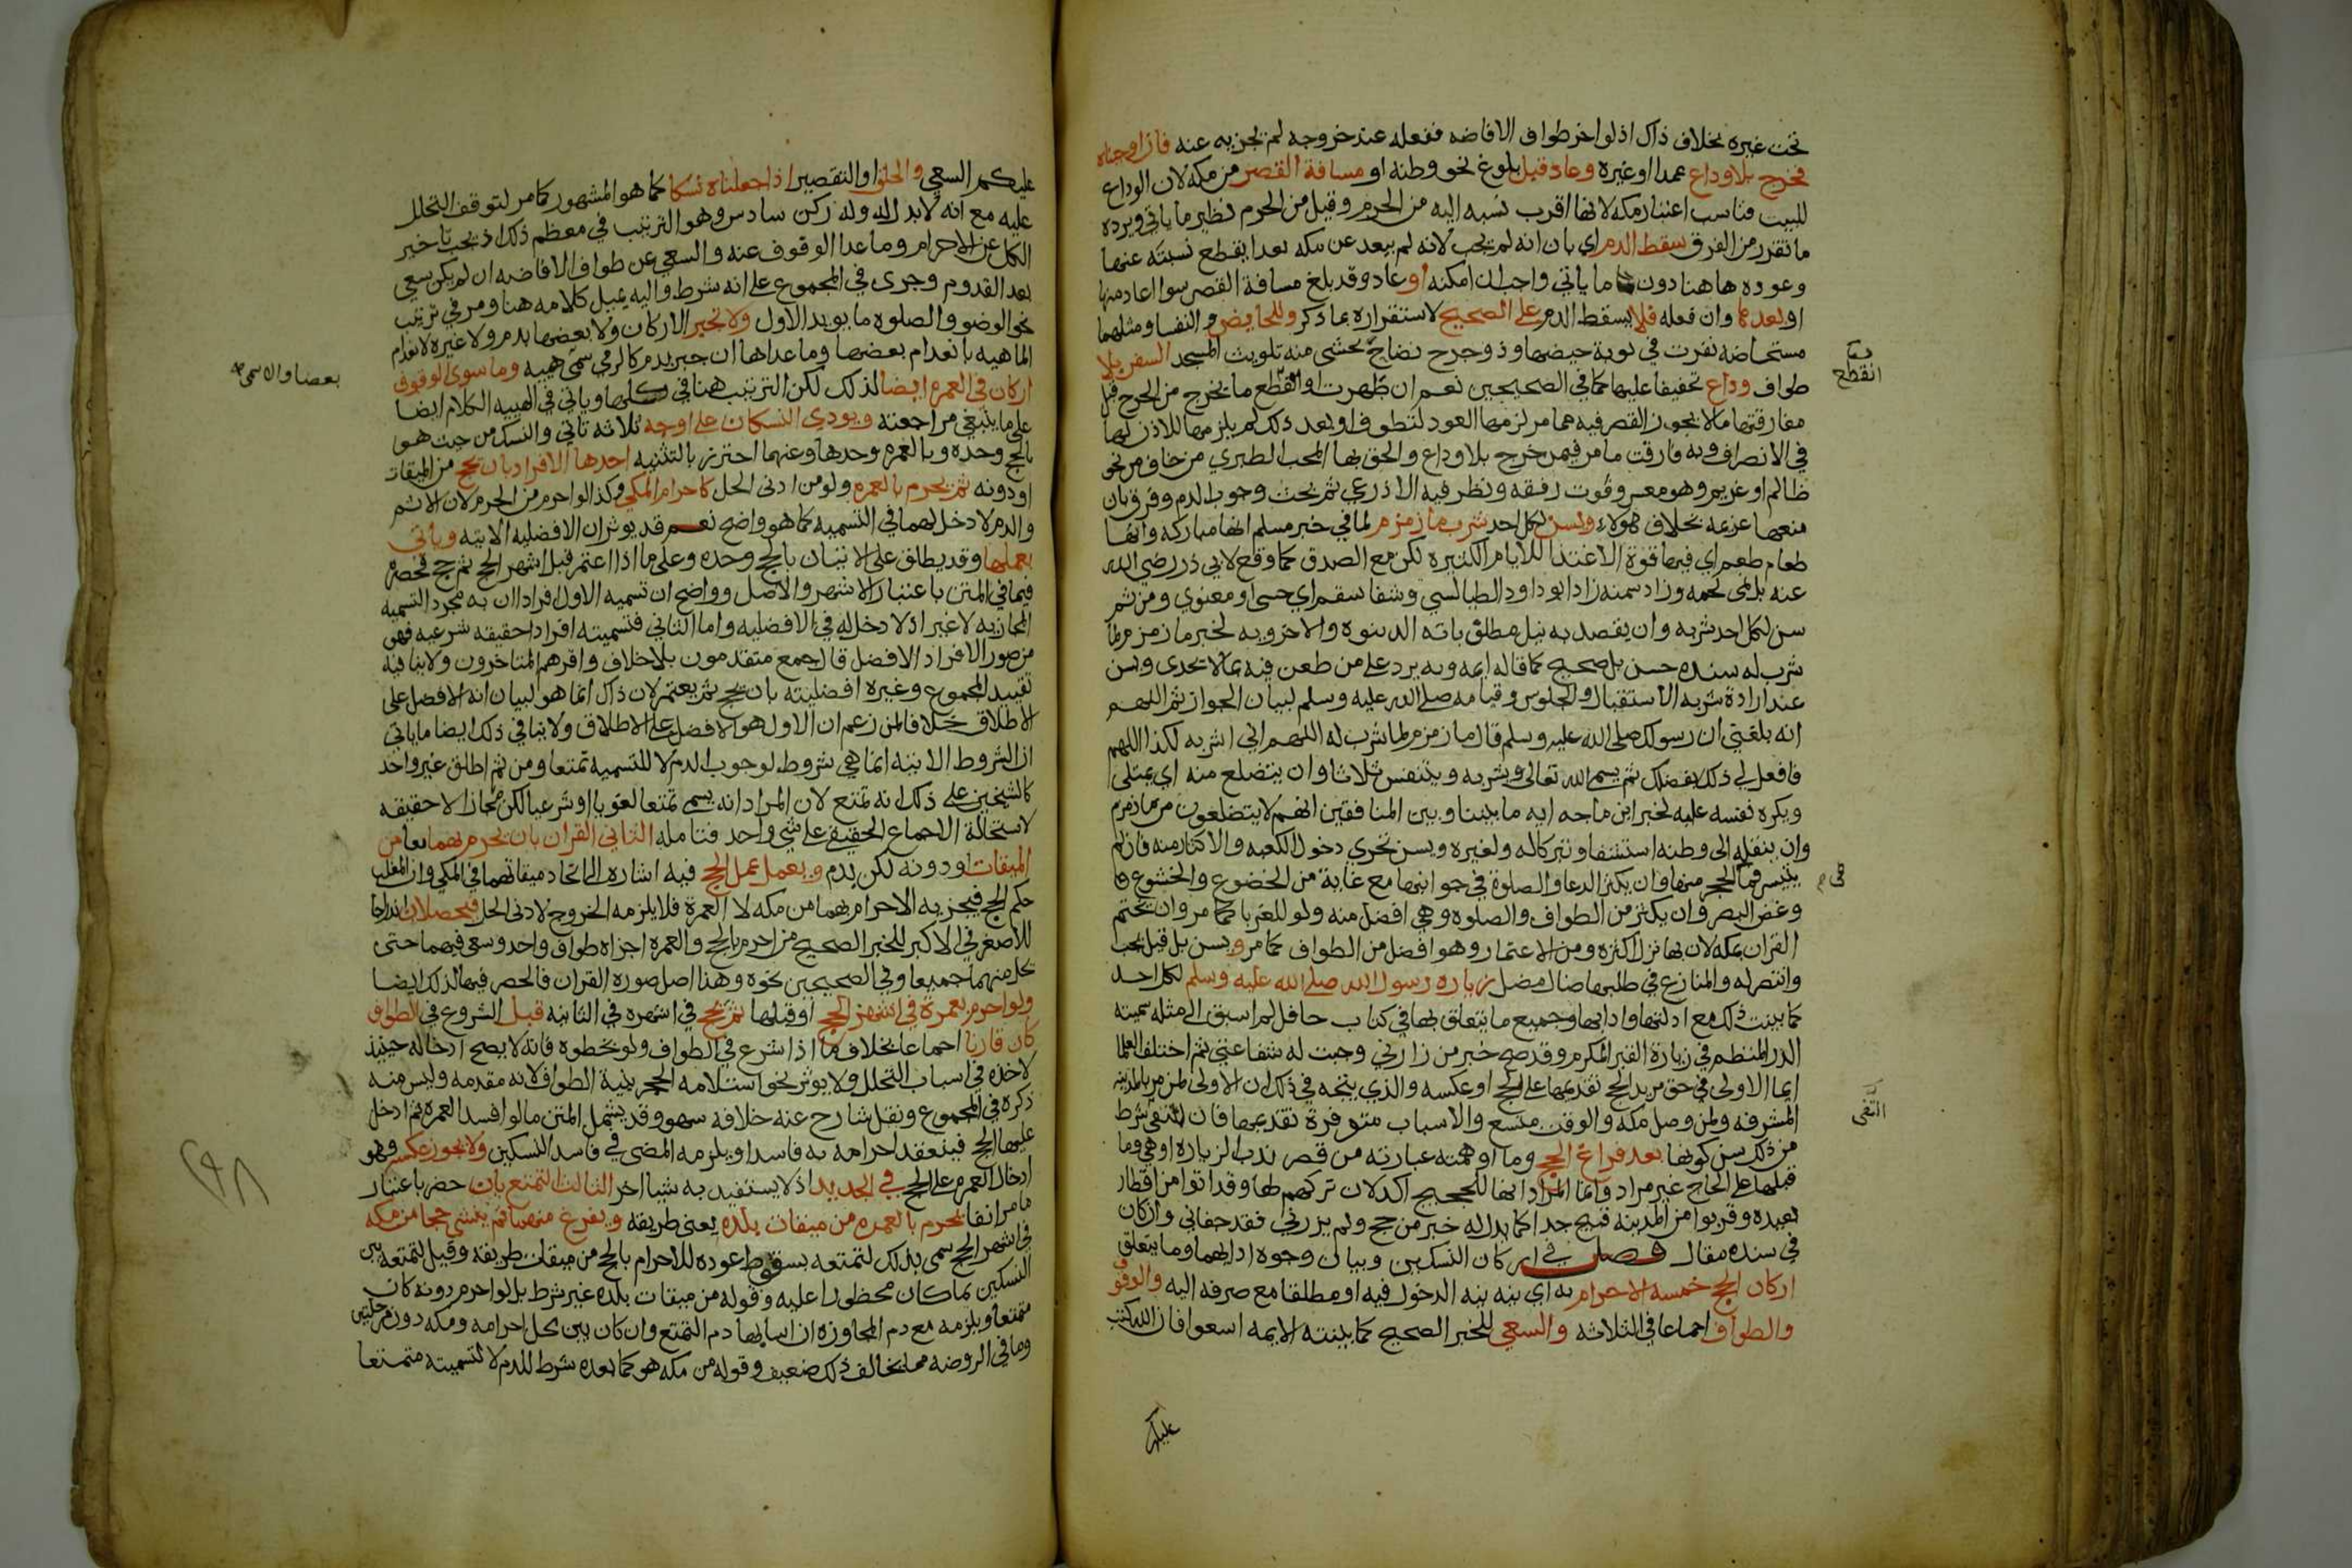 تحت غيره بخلاف ذاك اذ لو اخر طواف الافاضه ففعله عند خروجه لم يجز به عنه فان اوجبناه
فخرج بلا وداع عمدا او غيره وعاد قبل بلوغ نحو وطنه او مسافة القصر من مكه لان الوداع
للبيت فناسب اعتبار مكه لانها اقرب نسبه اليه من الحرم وقيل من الحرم نظير ما ياتي ويرده
ما تقرر من الفرق سقط الدم اي بان انه لم يجب لانه لم يبعد عن مكه بعدا يقطع نسبته عنها
وعوده هاهنا دون ما ياتي واجب ان امكنه او عاد وقد بلغ مسافة القصر سوا اعاد منها
او بعدها وان فعله فلا يسقط الدم على الصحيح لاستقراره بما ذكر وللحايض والنفسا ومثلهما
مستحاضه نفرت في نوبة حيضها وذو جرح نضاح يخشى منه تلويث المسجد السفر بلا
طواف وداع تخفيفا عليها كما في الصحيحين نعم ان طهرت او انقطع ما يخرج من الجرح قبل
مفارقتها ما لا يجوز القصر فيه مما مر لزمها العود لتطوف او بعد ذلك لم يلزمها للاذن لها
في الانصراف وبه فارقت ما مر فيمن خرج بلا وداع والحق بها المحب الطبري من خاف من نحو
ظالم او غريم وهو معسر وفوت رفقه ونظر فيه الاذرعي ثم بحث وجوب الدم وفرق بان
منعها عزيمه بخلاف هولاء ويسن لكل احد شرب ماء زمزم لما في خبر مسلم انها مباركه وانها
طعام طعم اي فيها قوة الاغتذا للايام الكثيره لكن مع الصدق كما وقع لابي ذر رضي الله
عنه بل نمى لحمه وزاد سمنه زاد ابو داود الطيالسي وشفا سقم اي حسي او معنوي ومن ثم
سن لكل احد شربه وان يقصد به نيل مطلق باته الدينوه والاخرويه لخبر ما زمزم لما
شرب له سنده حسن بل صحيح كما قاله ايمه وبه يرد على من طعن فيه بما لا يجدى ويسن
عند ارادة شربه الاستقبال والجلوس وقيامه صلى الله عليه وسلم لبيان الجواز ثم اللهم
انه بلغني ان رسولك صلى الله عليه وسلم قال ما زمزم لما شرب له اللهم اني اشربه لكذا اللهم
فافعل لي ذلك بفضلك ثم يسمي الله تعالى ويشربه ويتنفس ثلاثا وان يتضلع منه اي يمتلي
ويكره نفسه عليه لخبر ابن ماجه ايه ما بيننا وبين المنافقين انهم لا يتضلعون من ما زمزم
وان ينقله الى وطنه استشفا وتبركا له ولغيره ويسن تحري دخول الكعبه والاكثار منه فان لم
يتيسر فما في الحجر منها وان يكثر الدعا والصلوة في جوانبها مع غاية من الخضوع والخشوع
وغض البصر وان يكثر من الطواف والصلوه وهي افضل منه ولو للغربا كما مر وان يختم
القران بمكه لان بها نزل اكثره ومن الاعتمار وهو افضل من الطواف كما مر ويسن بل قيل يجب
وانتصر له والمنازع في طلبها ضال مضل زياره رسول الله صلى الله عليه وسلم لكل احد
كما بينت ذلك مع ادلتها وادابها وجميع ما يتعلق بها في كتاب حافل لم اسبق الى مثله سميته
الدر المنظم في زيارة القبر المكرم وقد صح خبر من زارني وجبت له شفاعتي ثم اختلف العلما
ايما الاولى في حق مريد الحج تقديمها على الحج او عكسه والذي يتجه في ذلك ان الاولى لمن مر بالمدينه
المشرفه ولمن وصل مكه والوقت متسع والاسباب متوفرة تقديمها فان انتفى شرط
من ذلك سن كونها بعد فراغ الحج وما اوهمته عبارته من قصر ندب الزياره او هي وما
قبلها على الحاج غير مراد وانما المراد انها للحجيج اكد لان تركهم لها وقد اتوا من اقطار
بعيده وقربوا من المدينه قبيح جدا كما يدل له خبر من حج ولم يزرني فقد جفاني وان كان
في سنده مقال فصل في اركان النسكين وبيان وجوه ادايهما وما يتعلق
اركان الحج خمسه الاحرام به اي بنيه بنيه الدخول فيه او مطلقا مع صرفه اليه والوقوف
والطواف اجماعا في الثلاثه والسعي للخبر الصحيح كما بينته الايمه اسعوا فان الله كتب
عليكم
انقطع
في
انتفى
عليكم السعي والحلق او التقصير اذا جعلناه نسكا كما هو المشهور كما مر لتوقف التحلل
عليه مع انه لا بدل له وله ركن سادس وهو الترتيب في معظم ذلك اذ يجب تاخير
الكل عن الاحرام وما عدا الوقوف عنه والسعي عن طواف الافاضه ان لم يكن سعي
بعد القدوم وجرى في المجموع على انه شرط واليه يميل كلامه هنا ومر في ترتيب
نحو الوضو والصلوه ما يويد الاول ولا تجبر الاركان ولا بعضها بدم ولا غيره لانعدام
الماهيه بانعدام بعضها وما عداها ان جبر بدم كالرمي سمي هييه وما سوى الوقوف
اركان في العمره ايضا لذلك لكن الترتيب هنا في كلها وياتي في الهييه الكلام ايضا
على ما ينبغي مراجعته ويودي النسكان على اوجه ثلاثه تاتي والنسك من حيث هو
بالحج وحده وبالعمره وحدها وعنهما احترز بالتثنيه احدها الافراد بان يحج من الميقات
او دونه ثم يحرم بالعمره ولو من ادنى الحل كاحرام المكي وكذا لو احرم من الحرم لان الاثم
والدم لا دخل لهما في التسميه كما هو واضح نعم قد يوثران الافضليه الاتيه وياتي
بعملها وقد يطلق على الاتيان بالحج وحده وعلى ما اذا اعتمر قبل اشهر الحج ثم حج فحصره
فيما في المتن باعتبار الاشهر والاصل وواضح ان تسميه الاول افرادا ان به مجرد التسميه
المجازيه لا غير اذ لا دخل له في الافضليه واما الثاني فتسميته افرادا حقيقه شرعيه فهي
من صور الافراد الافضل قال جمع متقدمون بلا خلاف واقرهم المتاخرون ولا ينافيه
تقييد المجموع وغيره افضليته بان يحج ثم يعتمر لان ذاك انما هو لبيان انه الافضل على
الاطلاق خلافا لمن زعم ان الاول هو الافضل على الاطلاق ولا ينافي ذلك ايضا ما ياتي
ان الشروط الاتيه انما هي شروط لوجوب الدم لا للتسميه تمتعا ومن ثم اطلق غير واحد
كالشيخين على ذلك انه تمتع لان المراد انه يسمى تمتعا لغويا او شرعيا لكن مجازا لا حقيقه
لاستحالة الاجماع الحقيقي على شي واحد فتامله الثاني القران بان يحرم بهما معا من
الميقات او دونه لكن بدم ويعمل عمل الحج فيه اشاره الى اتحاد ميقاتهما في المكي وان المغلب
حكم الحج فيجزيه الاحرام بهما من مكه لا العمرة فلا يلزمه الخروج لادنى الحل فيحصلان اندراجا
للاصغر في الاكبر للخبر الصحيح من احرم بالحج والعمره اجزاه طواف واحد وسعي فيهما حتى
يحل منهما جميعا وفي الصحيحين نحوه وهذا اصل صوره القران فالحصر فيها لذلك ايضا
ولو احرم بعمرة في اشهر الحج او قبلها ثم بحج في اشهره في الثانيه قبل الشروع في الطواف
كان قارنا اجماعا بخلاف ما اذا شرع في الطواف ولو بخطوه فانه لا يصح ادخاله حينيذ
لاخذه في اسباب التحلل ولا يوثر نحو استلامه الحجر بنية الطواف لانه مقدمه وليس منه
ذكره في المجموع ونقل شارح عنه خلافه سهو وقد يشمل المتن ما لو افسد العمره ثم ادخل
عليها الحج فينعقد احرامه به فاسدا ويلزمه المضى في فاسد النسكين ولا يجوز عكسه وهو
ادخال العمره على الحج في الجديد اذ لا يستفيد به شيا اخر الثالث التمتع بان حصر باعتبار
ما مر انفا يحرم بالعمره من ميقات بلده يعني طريقه ويفرغ منها ثم ينشي حجا من مكه
في اشهر الحج سمي بذلك لتمتعه بسقوط عوده للاحرام بالحج من ميقات طريقه وقيل لتمتعه بين
النسكين بما كان محظورا عليه وقوله من ميقات بلده غير شرط بل لو احرم دونه كان
متمتعا ويلزمه مع دم المجاوزه ان اساء بها دم التمتع وان كان بين محل احرامه ومكه دون مرحلتين
وما في الروضه مما يخالف ذلك ضعيف وقوله من مكه هو كما بعده شرط للدم لا لتسميته متمتعا